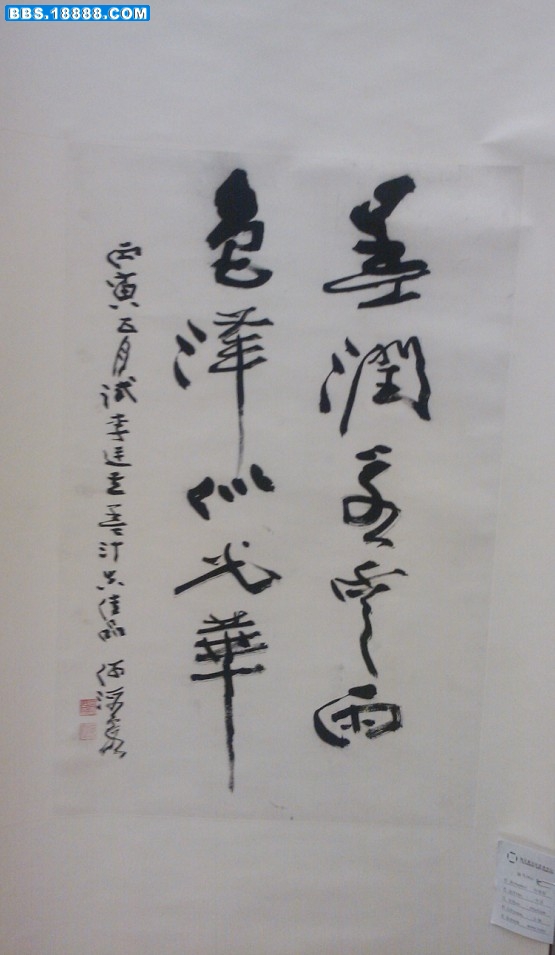 BBS.18888.COM
墨潤雨
色澤似光華
丙寅五月試李廷圭墨汁佳品 何海霞